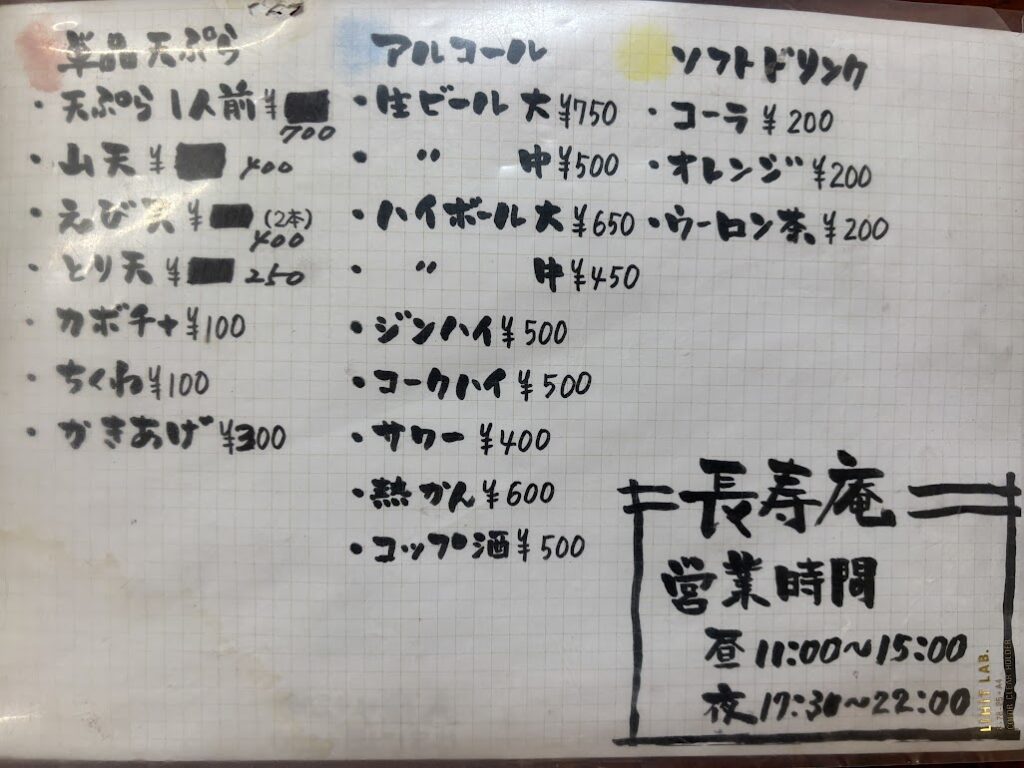 単品天ぷら
・天ぷら 1人前 ¥700
・山天 ¥400
・えび天 ¥(2本)400
・とり天 ¥250
・カボチャ ¥100
・ちくわ ¥100
・かきあげ ¥300
アルコール
・生ビール 大 ¥750
・ 〃 中 ¥500
・ハイボール 大 ¥650
・ 〃 中 ¥450
・ジンハイ ¥500
・コークハイ ¥500
・サワー ¥400
・熱かん ¥600
・コップ酒 ¥500
ソフトドリンク
・コーラ ¥200
・オレンジ ¥200
・ウーロン茶 ¥200
長寿庵
営業時間
昼 11:00～15:00
夜 17:30～22:00
LIHIT LAB.